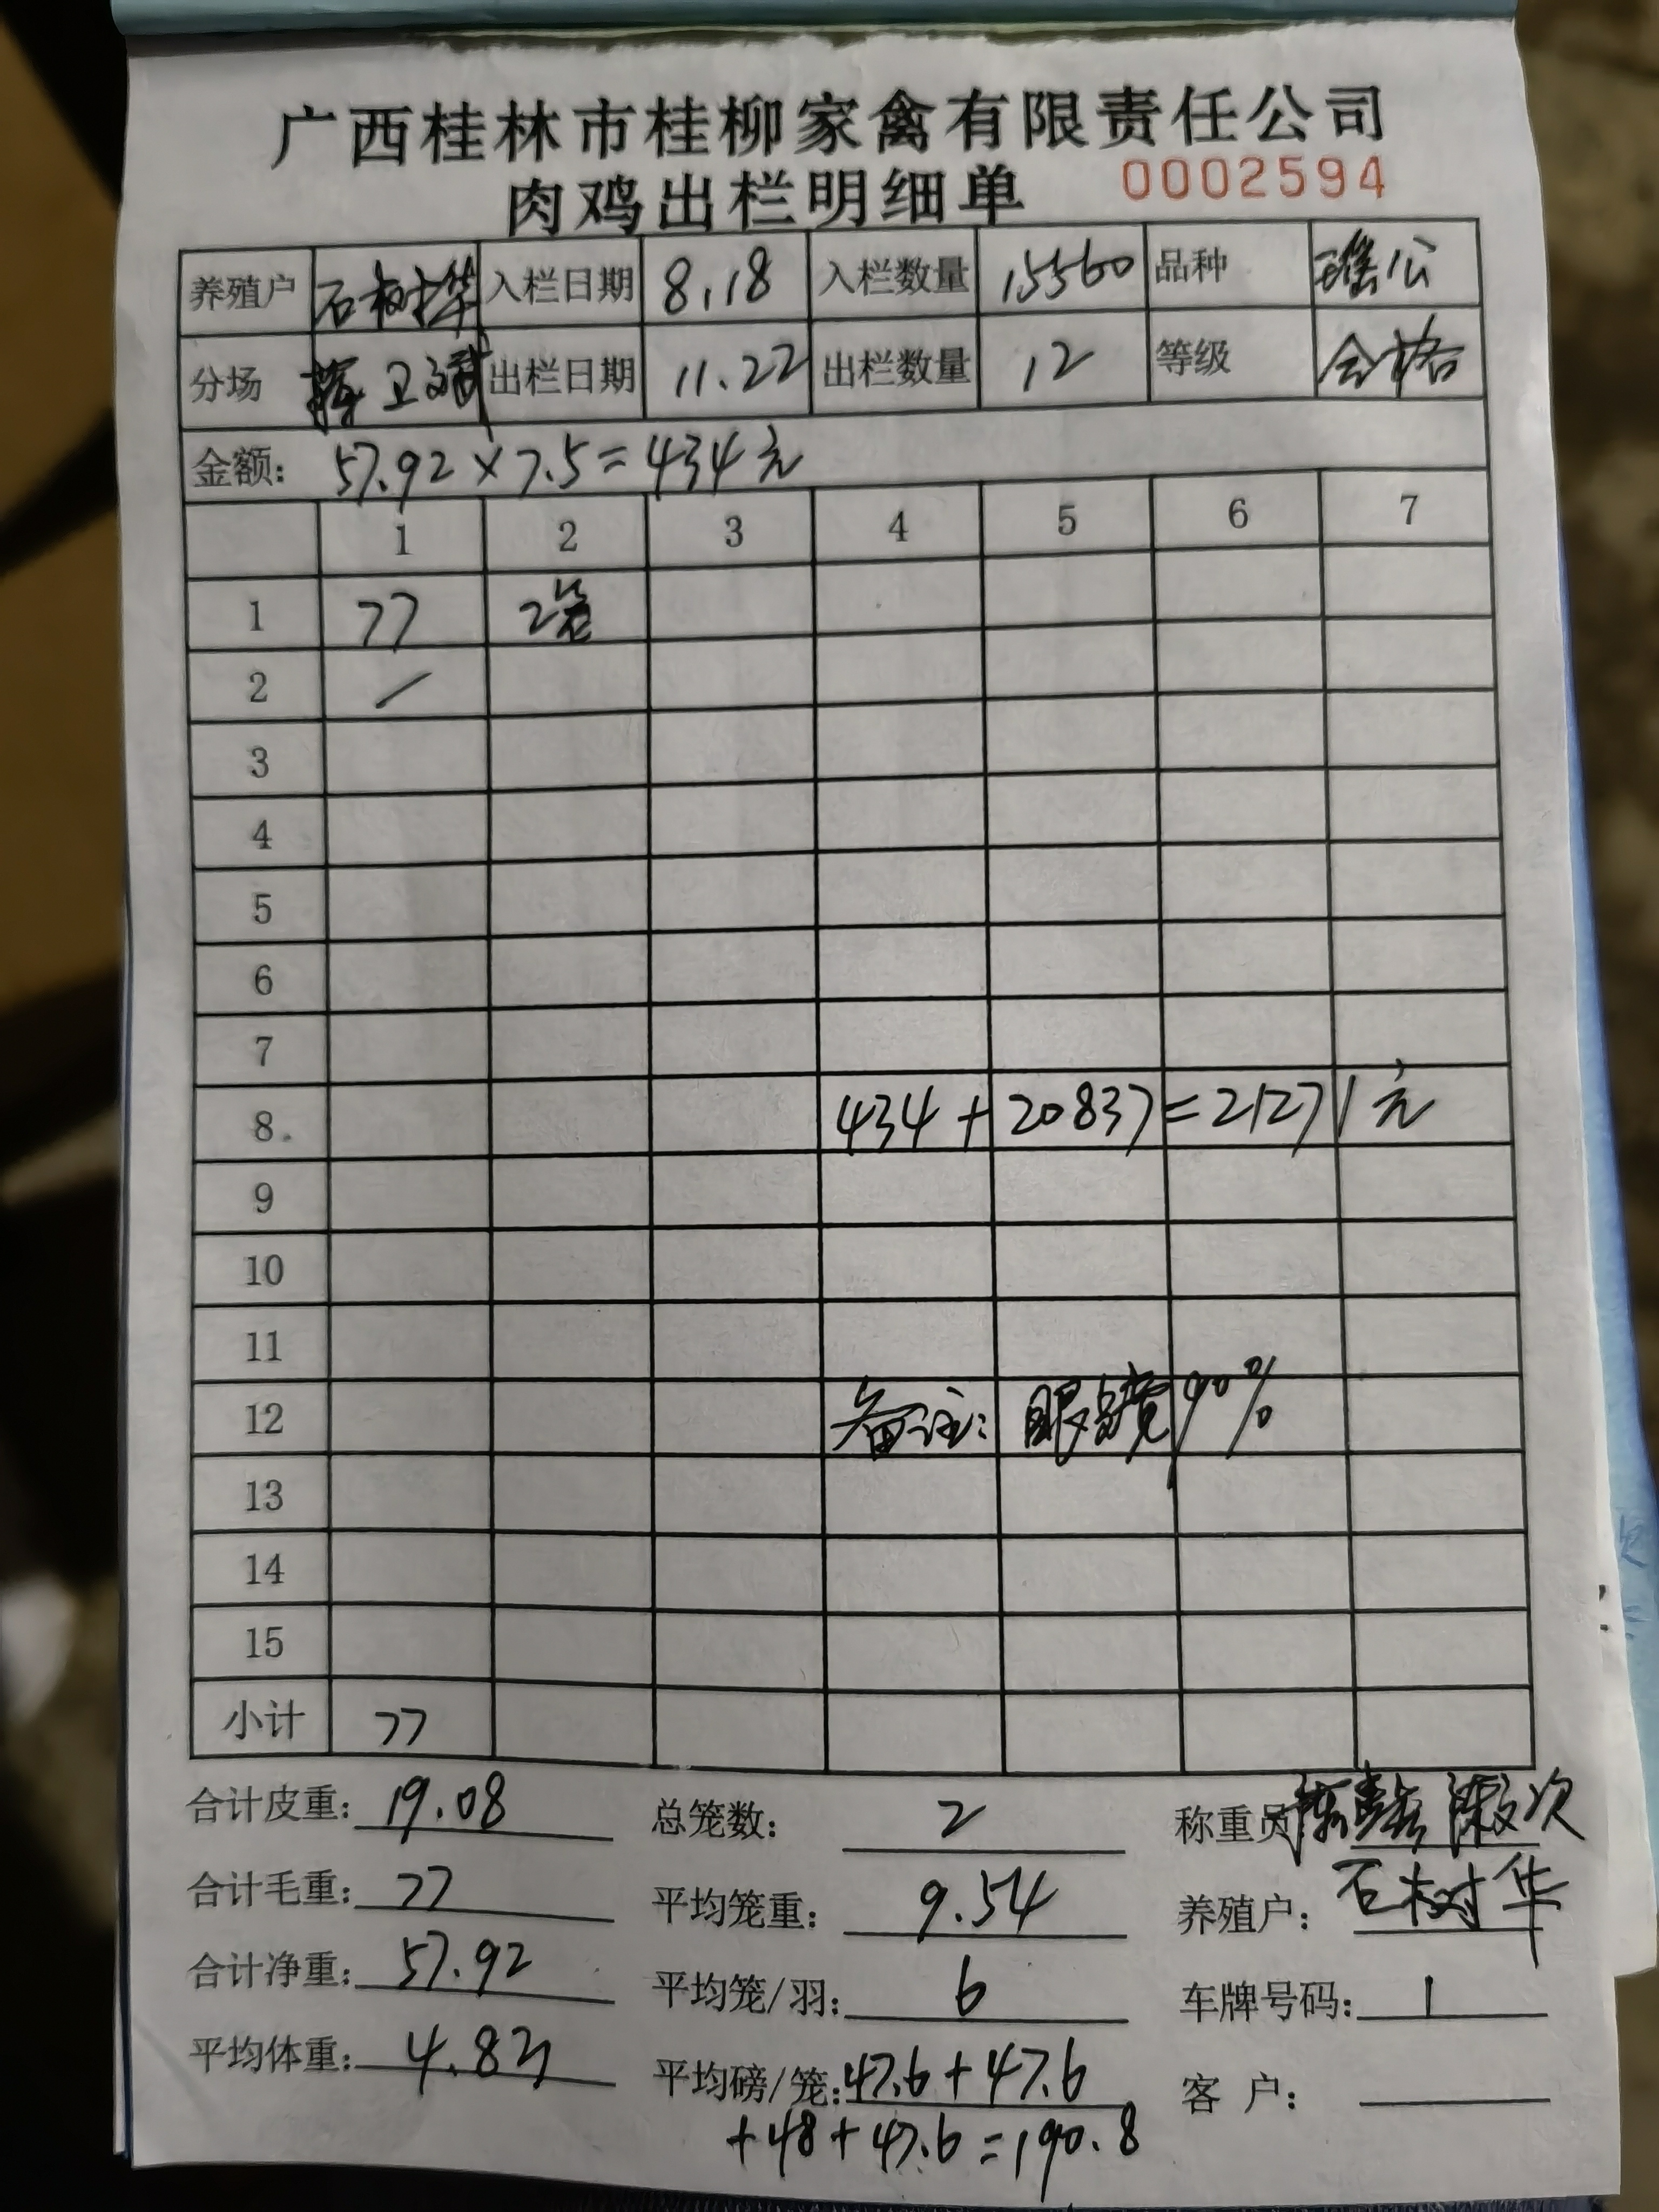 广西桂林市桂柳家禽有限责任公司
肉鸡出栏明细单 0002594
养殖户 石树华 入栏日期 8.18 入栏数量 15560 品种 瑶公
分场 卫斌 出栏日期 11.22 出栏数量 12 等级 合格
金额: 57.92×7.5=434元
1 2 3 4 5 6 7
1 77 2笼
2 /
3
4
5
6
7
8. 434+20837=21271元
9
10
11
12 备注: 眼镜90%
13
14
15
小计 77
合计皮重: 19.08 总笼数: 2 称重员
合计毛重: 77 平均笼重: 9.54 养殖户: 石树华
合计净重: 57.92 平均笼/羽: 6 车牌号码: 1
平均体重: 4.83 平均磅/笼: 47.6+47.6 客户:
+48+47.6=190.8